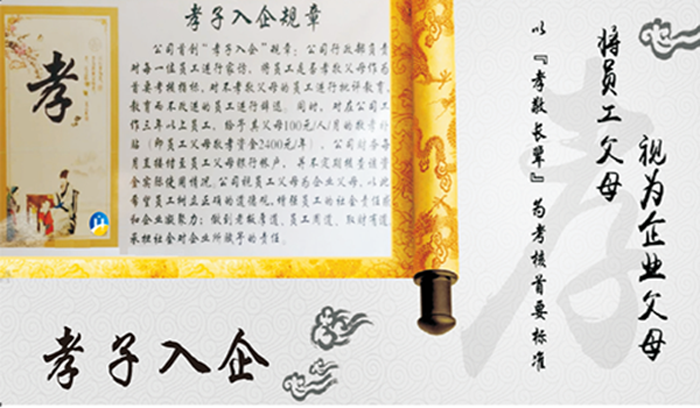 孝子入企规章
公司首创“孝子入企”规章：公司行政部负责
对每一位员工进行家访，将员工是否孝敬父母作为
首要考核指标，对不孝敬父母的员工进行批评教育，
教育而不改进的员工进行辞退。同时，对在公司工
作三年以上员工，给予其父母100元/人/月的敬孝补
贴（即员工父母敬孝资金2400元/年），公司财务每
月直接付至员工父母银行帐户，并不定期核查该资
金实际使用情况。公司视员工父母为企业父母，以此
希望员工树立正确的道德观，增强员工的社会责任感
和企业凝聚力；做到老敬孝道、员工周道、取财有道，
承担社会对企业所赋予的责任。
孝
将员工父母
视为企业父母
以『孝敬长辈』为考核首要标准
孝
孝子入企